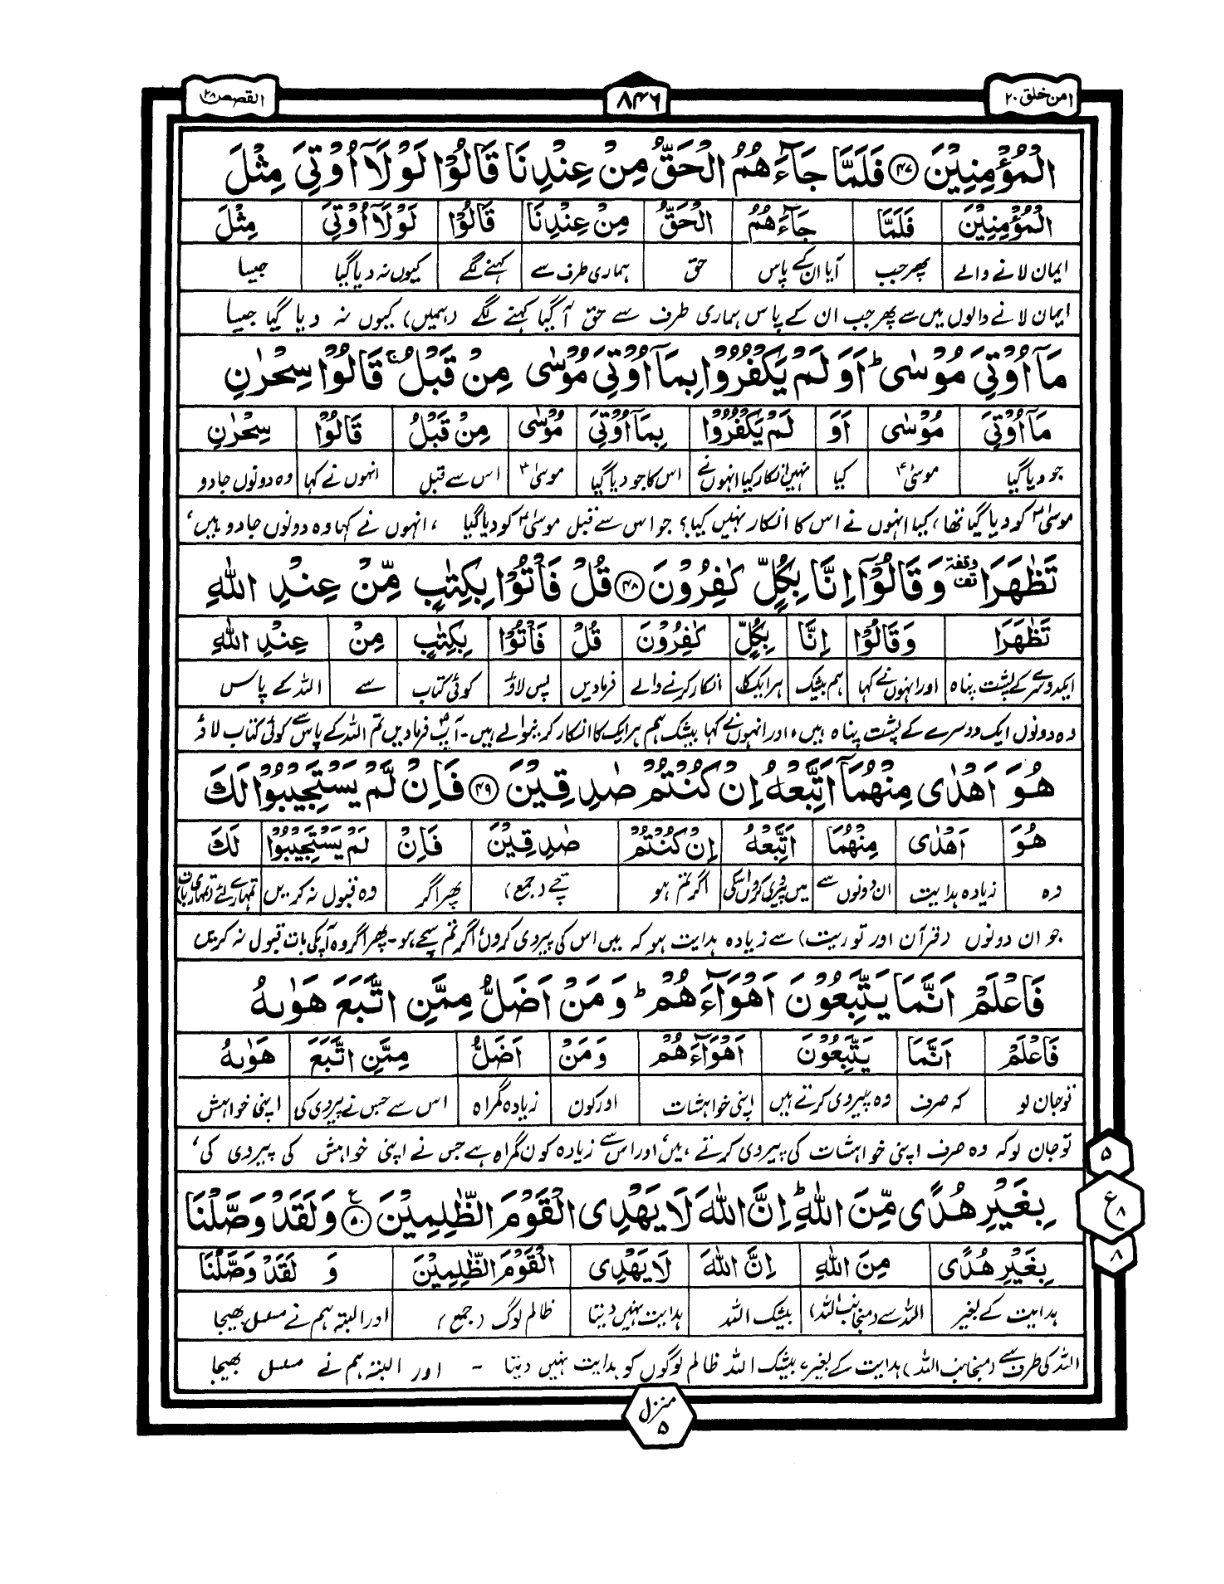 امن خلق ٢٠
٨٤٦
القصص ٢٨
الْمُؤْمِنِيْنَ ﴿٤٧﴾ فَلَمَّا جَآءَهُمُ الْحَقُّ مِنْ عِنْدِنَا قَالُوْا لَوْلَآ اُوْتِيَ مِثْلَ
الْمُؤْمِنِيْنَ فَلَمَّا جَآءَهُمُ الْحَقُّ مِنْ عِنْدِنَا قَالُوْا لَوْلَآ اُوْتِيَ مِثْلَ
ایمان لانے والے پھر جب آیا ان کے پاس حق ہماری طرف سے کہنے لگے کیوں نہ دیا گیا جیسا
ایمان لانے والوں میں سے پھر جب ان کے پاس ہماری طرف سے حق آ گیا کہنے لگے (ہمیں) کیوں نہ دیا گیا جیسا
مَآ اُوْتِيَ مُوْسٰى ؕ اَوَ لَمْ يَكْفُرُوْا بِمَآ اُوْتِيَ مُوْسٰى مِنْ قَبْلُ ۚ قَالُوْا سِحْرٰنِ
مَآ اُوْتِيَ مُوْسٰى اَوَ لَمْ يَكْفُرُوْا بِمَآ اُوْتِيَ مُوْسٰى مِنْ قَبْلُ قَالُوْا سِحْرٰنِ
جو دیا گیا موسیٰؑ کیا نہیں انکار کیا انہوں نے اس کا جو دیا گیا موسیٰؑ اس سے قبل انہوں نے کہا وہ دونوں جادو
موسیٰؑ کو دیا گیا تھا، کیا انہوں نے اس کا انکار نہیں کیا؟ جو اس سے قبل موسیٰؑ کو دیا گیا ، انہوں نے کہا وہ دونوں جادو ہیں،
تَظٰهَرَا وقفة وَقَالُوْٓا اِنَّا بِكُلٍّ كٰفِرُوْنَ ﴿٤٨﴾ قُلْ فَاْتُوْا بِكِتٰبٍ مِّنْ عِنْدِ اللّٰهِ
تَظٰهَرَا وَقَالُوْٓا اِنَّا بِكُلٍّ كٰفِرُوْنَ قُلْ فَاْتُوْا بِكِتٰبٍ مِنْ عِنْدِ اللّٰهِ
ایک دوسرے کے پشت پناہ اور انہوں نے کہا ہم بیشک ہر ایک کا انکار کرنے والے فرما دیں پس لاؤ کوئی کتاب سے اللہ کے پاس
وہ دونوں ایک دوسرے کے پشت پناہ ہیں، اور انہوں نے کہا بیشک ہم ہر ایک کا انکار کرنیوالے ہیں۔ آپؐ فرما دیں تم اللہ کے پاس سے کوئی کتاب لاؤ
هُوَ اَهْدٰى مِنْهُمَآ اَتَّبِعْهُ اِنْ كُنْتُمْ صٰدِقِيْنَ ﴿٤٩﴾ فَاِنْ لَّمْ يَسْتَجِيْبُوْا لَكَ
هُوَ اَهْدٰى مِنْهُمَا اَتَّبِعْهُ اِنْ كُنْتُمْ صٰدِقِيْنَ فَاِنْ لَمْ يَسْتَجِيْبُوْا لَكَ
وہ زیادہ ہدایت ان دونوں سے میں پیروی کروں اس کی اگر تم ہو سچے (جمع) پھر اگر وہ قبول نہ کریں تمہارے لئے (تمہاری بات)
جو ان دونوں (قرآن اور توریت) سے زیادہ ہدایت ہو کہ میں اس کی پیروی کروں اگر تم سچے ہو۔ پھر اگر وہ آپ کی بات قبول نہ کریں
فَاعْلَمْ اَنَّمَا يَتَّبِعُوْنَ اَهْوَآءَهُمْ ؕ وَمَنْ اَضَلُّ مِمَّنِ اتَّبَعَ هَوٰىهُ
فَاعْلَمْ اَنَّمَا يَتَّبِعُوْنَ اَهْوَآءَهُمْ وَمَنْ اَضَلُّ مِمَّنِ اتَّبَعَ هَوٰىهُ
تو جان لو کہ صرف وہ پیروی کرتے ہیں اپنی خواہشات اور کون زیادہ گمراہ اس سے جس نے پیروی کی اپنی خواہش
تو جان لو کہ وہ صرف اپنی خواہشات کی پیروی کرتے ہیں، اور اس سے زیادہ کون گمراہ ہے جس نے اپنی خواہش کی پیروی کی،
بِغَيْرِ هُدًى مِّنَ اللّٰهِ ؕ اِنَّ اللّٰهَ لَا يَهْدِى الْقَوْمَ الظّٰلِمِيْنَ ﴿٥٠﴾ وَلَقَدْ وَصَّلْنَا
بِغَيْرِ هُدًى مِنَ اللّٰهِ اِنَّ اللّٰهَ لَا يَهْدِى الْقَوْمَ الظّٰلِمِيْنَ وَ لَقَدْ وَصَّلْنَا
ہدایت کے بغیر اللہ سے (منجانب اللہ) بیشک اللہ ہدایت نہیں دیتا ظالم لوگ (جمع) اور البتہ ہم نے مسلسل بھیجا
اللہ کی طرف سے (منجانب اللہ) ہدایت کے بغیر، بیشک اللہ ظالم لوگوں کو ہدایت نہیں دیتا ۔ اور البتہ ہم نے مسلسل بھیجا
٥
ع ٨
٨
منزل ٥